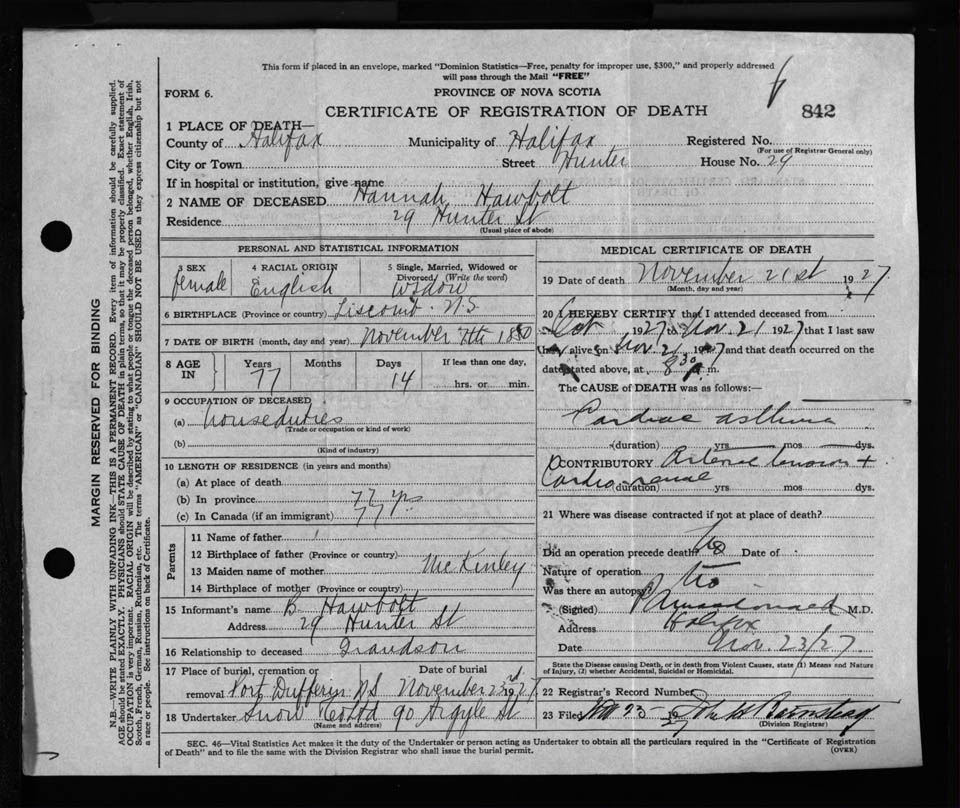 This form if placed in an envelope, marked "Dominion Statistics—Free, penalty for improper use, $300," and properly addressed
will pass through the Mail "FREE"
FORM 6. PROVINCE OF NOVA SCOTIA
CERTIFICATE OF REGISTRATION OF DEATH 842
1 PLACE OF DEATH—
County of Halifax Municipality of Halifax Registered No.
(For use of Registrar General only)
City or Town Street Hunter House No. 29
If in hospital or institution, give name
2 NAME OF DECEASED Hannah Hawbolt
Residence 29 Hunter St
(Usual place of abode)
PERSONAL AND STATISTICAL INFORMATION
3 SEX 4 RACIAL ORIGIN 5 Single, Married, Widowed or
Divorced (Write the word)
female English widow
6 BIRTHPLACE (Province or country) Liscomb N.S
7 DATE OF BIRTH (month, day and year) November 7th 1850
8 AGE IN Years Months Days If less than one day,
77 14 hrs. or min.
9 OCCUPATION OF DECEASED
(a) house duties
(Trade or occupation or kind of work)
(b)
(Kind of industry)
10 LENGTH OF RESIDENCE (in years and months)
(a) At place of death
(b) In province 77 yrs
(c) In Canada (if an immigrant) 77
Parents
11 Name of father
12 Birthplace of father (Province or country)
13 Maiden name of mother McKinley
14 Birthplace of mother (Province or country)
15 Informant's name B. Hawbolt
Address 29 Hunter St
16 Relationship to deceased Grandson
17 Place of burial, cremation or Date of burial
removal Port Dufferin NS November 23rd 1927
18 Undertaker Snow & Co Ltd 90 Argyle St
(Name and address)
MEDICAL CERTIFICATE OF DEATH
19 Date of death November 21st 1927
(Month, day and year)
20 I HEREBY CERTIFY that I attended deceased from
Oct 1927 to Nov. 21 1927 that I last saw
her alive on Nov. 21 1927 and that death occurred on the
date stated above, at 8 30 m.
The CAUSE of DEATH was as follows:—
Cardiac asthma
(duration) yrs mos dys.
CONTRIBUTORY +
Cardio renal
(duration) yrs mos dys
21 Where was disease contracted if not at place of death?
Did an operation precede death? No Date of
Nature of operation
Was there an autopsy? No
(Signed) Macdonald M.D.
Address Halifax
Date Nov. 23/27
State the Disease causing Death, or in death from Violent Causes, state (1) Means and Nature
of Injury, (2) whether Accidental, Suicidal or Homicidal.
22 Registrar's Record Number
23 Filed Nov 23 John W
(Division Registrar)
SEC. 46—Vital Statistics Act makes it the duty of the Undertaker or person acting as Undertaker to obtain all the particulars required in the "Certificate of Registration
of Death" and to file the same with the Division Registrar who shall issue the burial permit. (OVER)
MARGIN RESERVED FOR BINDING
N.B.—WRITE PLAINLY WITH UNFADING INK—THIS IS A PERMANENT RECORD. Every item of information should be carefully supplied.
AGE should be stated EXACTLY. PHYSICIANS should STATE CAUSE OF DEATH in plain terms, so that it may be properly classified. Exact statement of
OCCUPATION is very important. RACIAL ORIGIN will be described by stating to what people or tongue the deceased person belonged, whether English, Irish,
Scotch, French, German, Russian, Ruthenian, etc. The terms "AMERICAN" or "CANADIAN" SHOULD NOT BE USED as they express citizenship but not
a race or people. See instructions on back of Certificate.